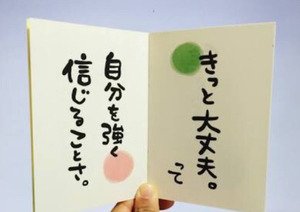 きっと大丈夫。
って
自分を強く
信じることさ。